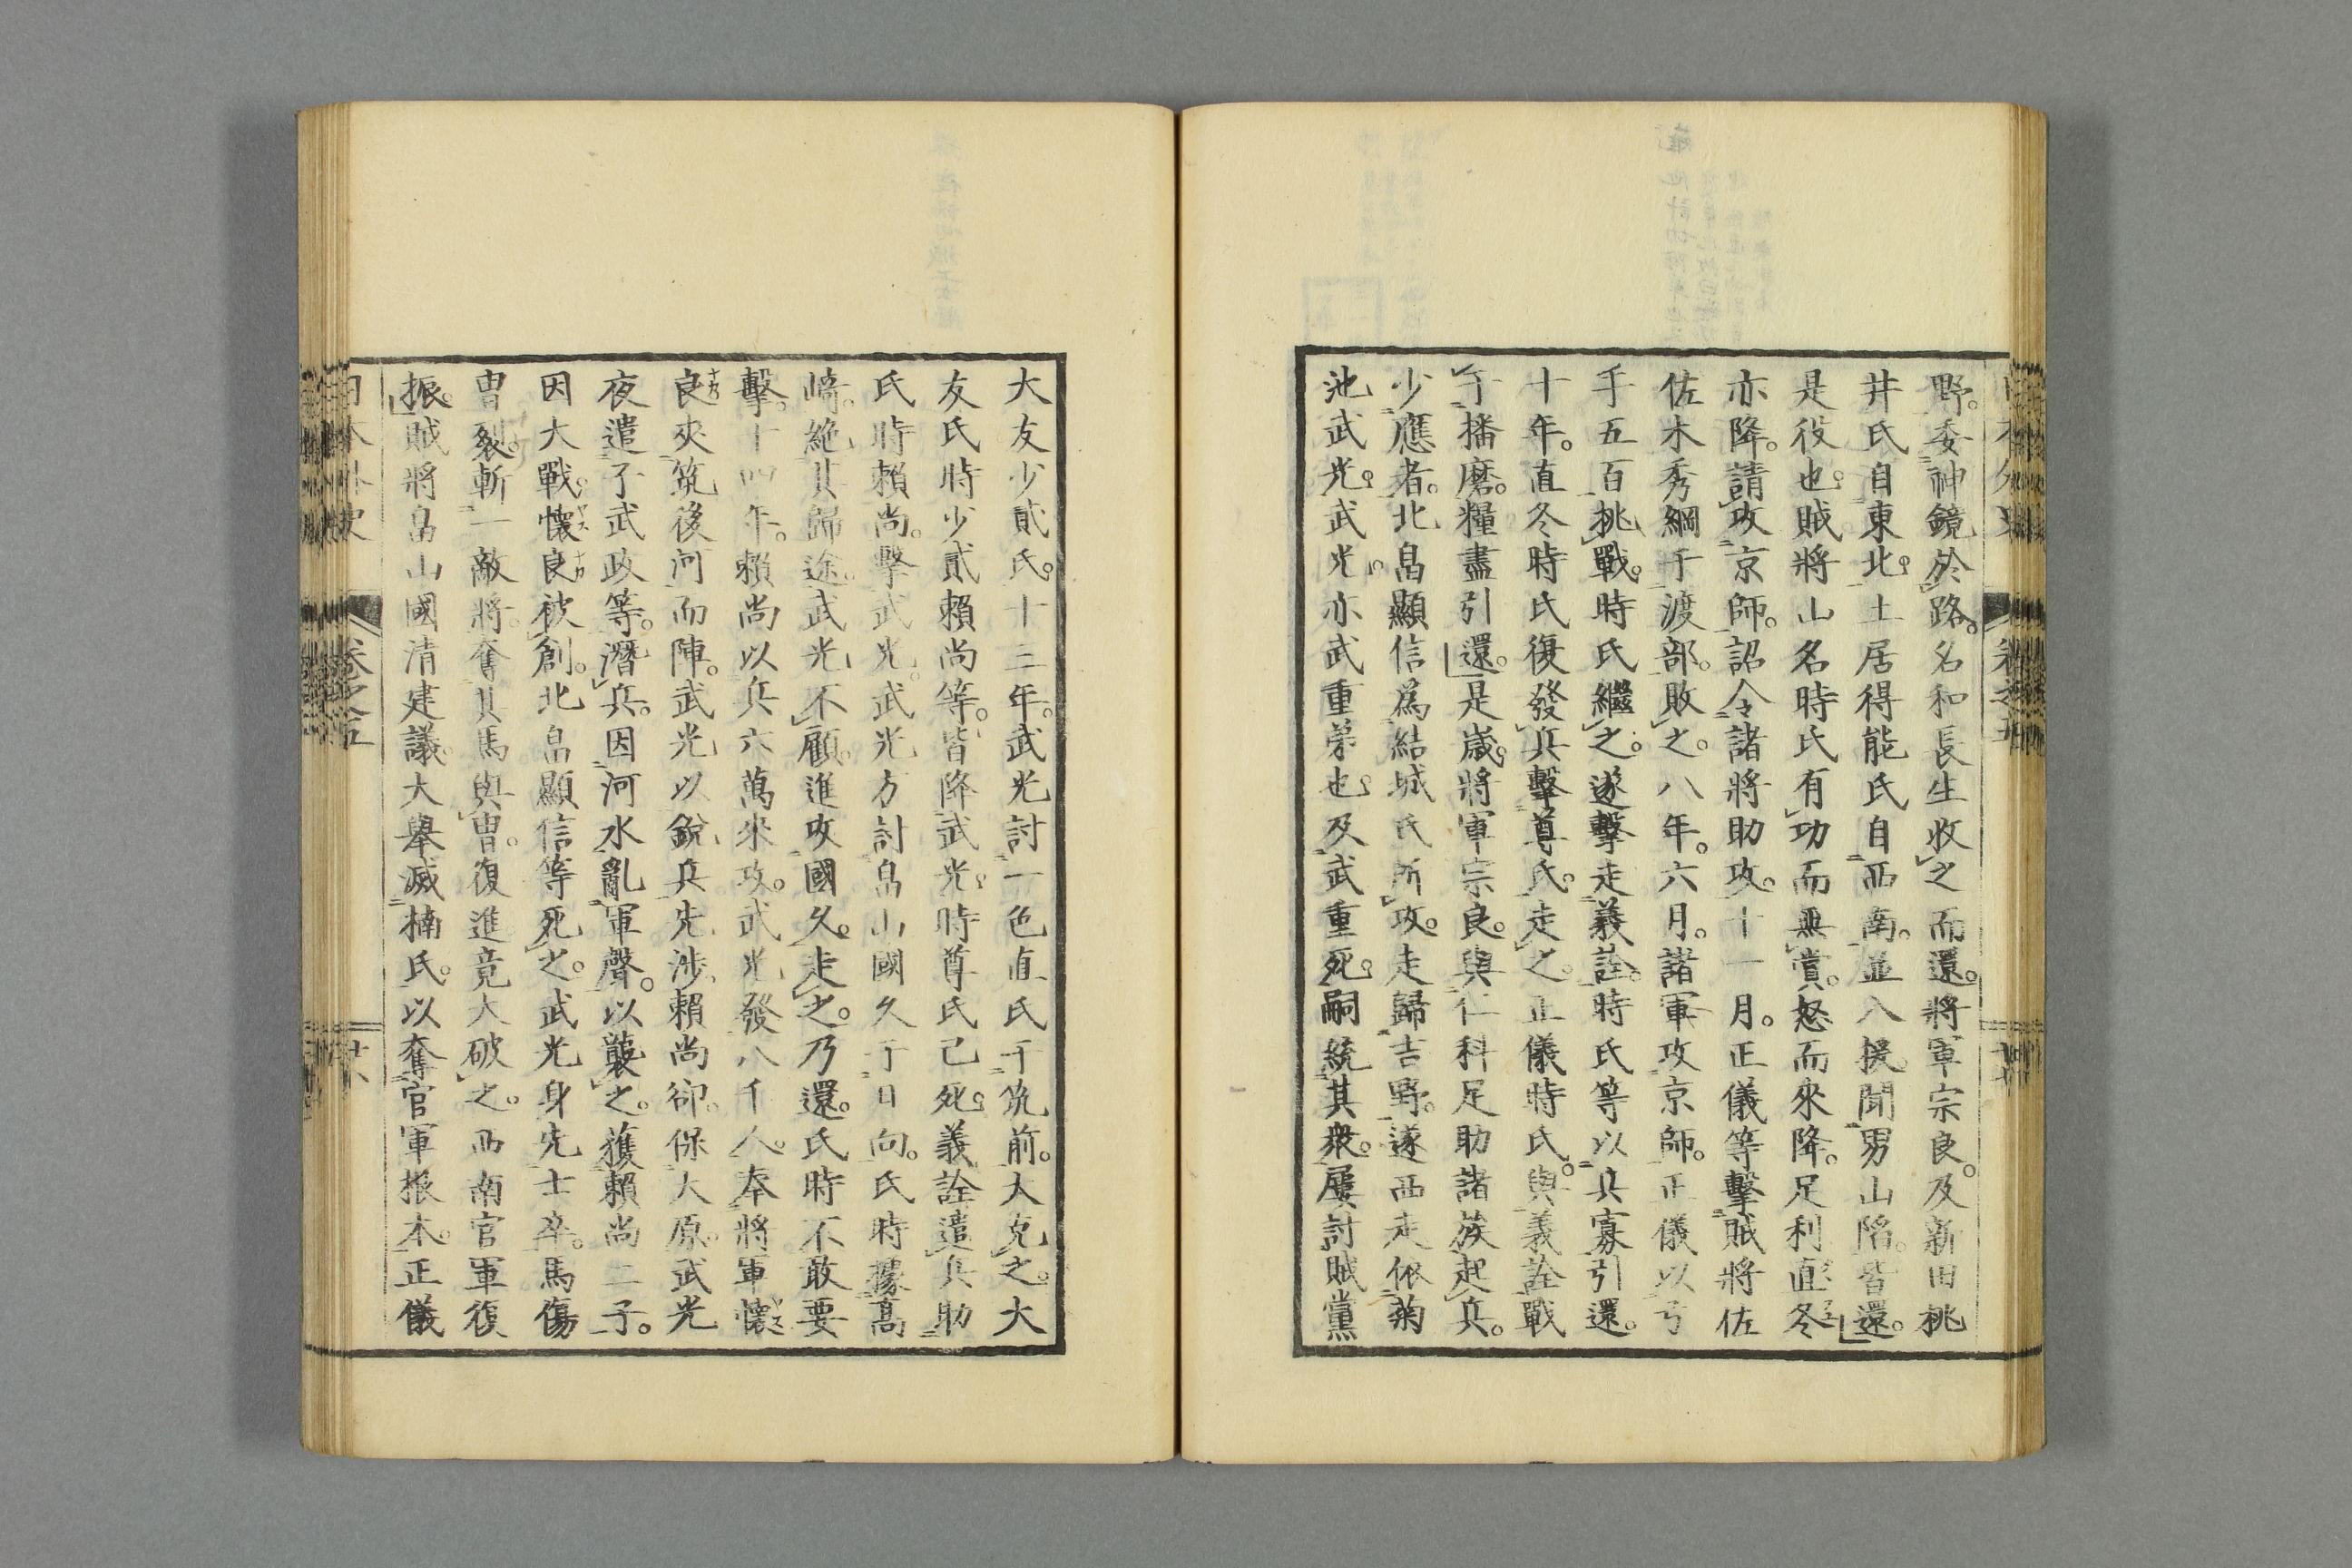 野。委神鏡於路。名和長生收之而還。將軍宗良。及新田桃
井氏自東北。土居得能氏自西南。並入援。聞男山陷。皆還。
是役也。賊將山名時氏有功而無賞。怒而來降。足利直冬
亦降。請攻京師。詔令諸將助攻。十一月。正儀等擊賊將佐
佐木秀綱于渡部。敗之。八年。六月。諸軍攻京師。正儀以弓
手五百挑戰。時氏繼之。遂擊走義詮。時氏等以兵寡引還。
十年。直冬時氏復發兵擊尊氏。走之。正儀時氏。與義詮戰
于播磨。糧盡引還。是歲。將軍宗良。與仁科足助諸族起兵。
少應者。北畠顯信為結城氏所攻。走歸吉野。遂西走依菊
池武光。武光。亦武重弟也。及武重死。嗣統其衆。屢討賊黨
大友少貳氏。十三年。武光討一色直氏于筑前。大克之。大
友氏時少貳賴尚等。皆降武光。時尊氏己死。義詮遣兵助
氏時賴尚。擊武光。武光方討畠山國久于日向。氏時據髙
崎。絶其歸途。武光不顧。進攻國久。走之。乃還。氏時不敢要
擊。十四年。賴尚以兵六萬來攻。武光發八千人。奉將軍懷
良夾筑後河而陣。武光以銳兵先涉。賴尚卻。保大原。武光
夜遣子武政等。潛兵。因河水亂軍聲。以襲之。獲賴尚二子。
因大戰。懷良被創。北畠顯信等死之。武光身先士卒。馬傷
冑裂。斬一敵將。奪其馬與冑。復進竟大破之。西南官軍復
振。賊將畠山國清建議。大舉滅楠氏。以奪官軍根本。正儀
日本外史 卷之五 廿八